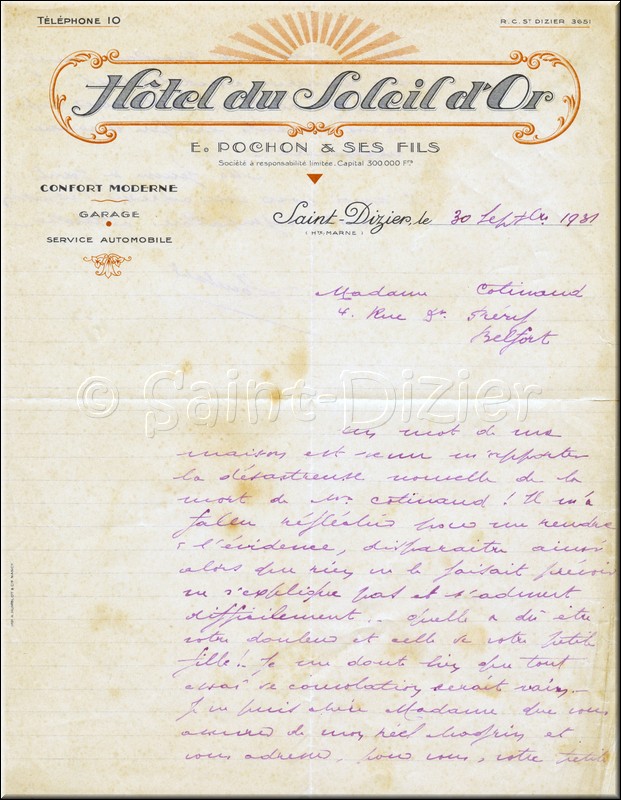 TÉLÉPHONE 10
R. C. ST DIZIER 3651
Hôtel du Soleil d'Or
E. POCHON & SES FILS
Société à responsabilité limitée. Capital 300.000 Frs
CONFORT MODERNE
GARAGE
SERVICE AUTOMOBILE
Saint-Dizier, le 30 Septbre 1931
(HTE MARNE)
Madame Cotinaud
4. Rue Dr. Fréry
Belfort
© Saint-Dizier
Un mot de ma
maison est venu m'apporter
la désastreuse nouvelle de la
mort de Mr Cotinaud ! Il m'a
fallu réfléchir pour me rendre
à l'évidence, disparaitre ainsi
alors que rien ne le faisait prévoir
ne s'explique pas et s'admet
difficilement.. Quelle a dû être
votre douleur et celle de votre petite
fille !.. Je me doute bien que tout
essai de consolation serait vain..
Je ne puis chère Madame que vous
assurer de mon réel chagrin et
vous adresse, pour vous, votre petite